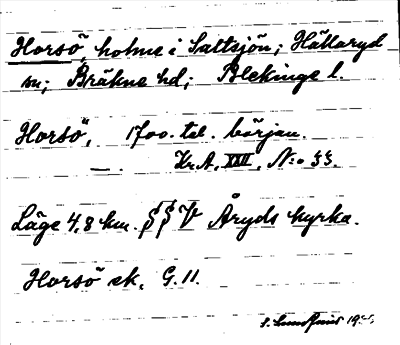 Horsö, holme i Saltsjön; Hällaryd
sn; Bräkne hd; Blekinge l.
Horsö, 1700-tal. början.
— . Kr.A. XXII, N:o 33.
Läge 4,8 km. SSV Åryds kyrka.
Horsö ek. G.11.